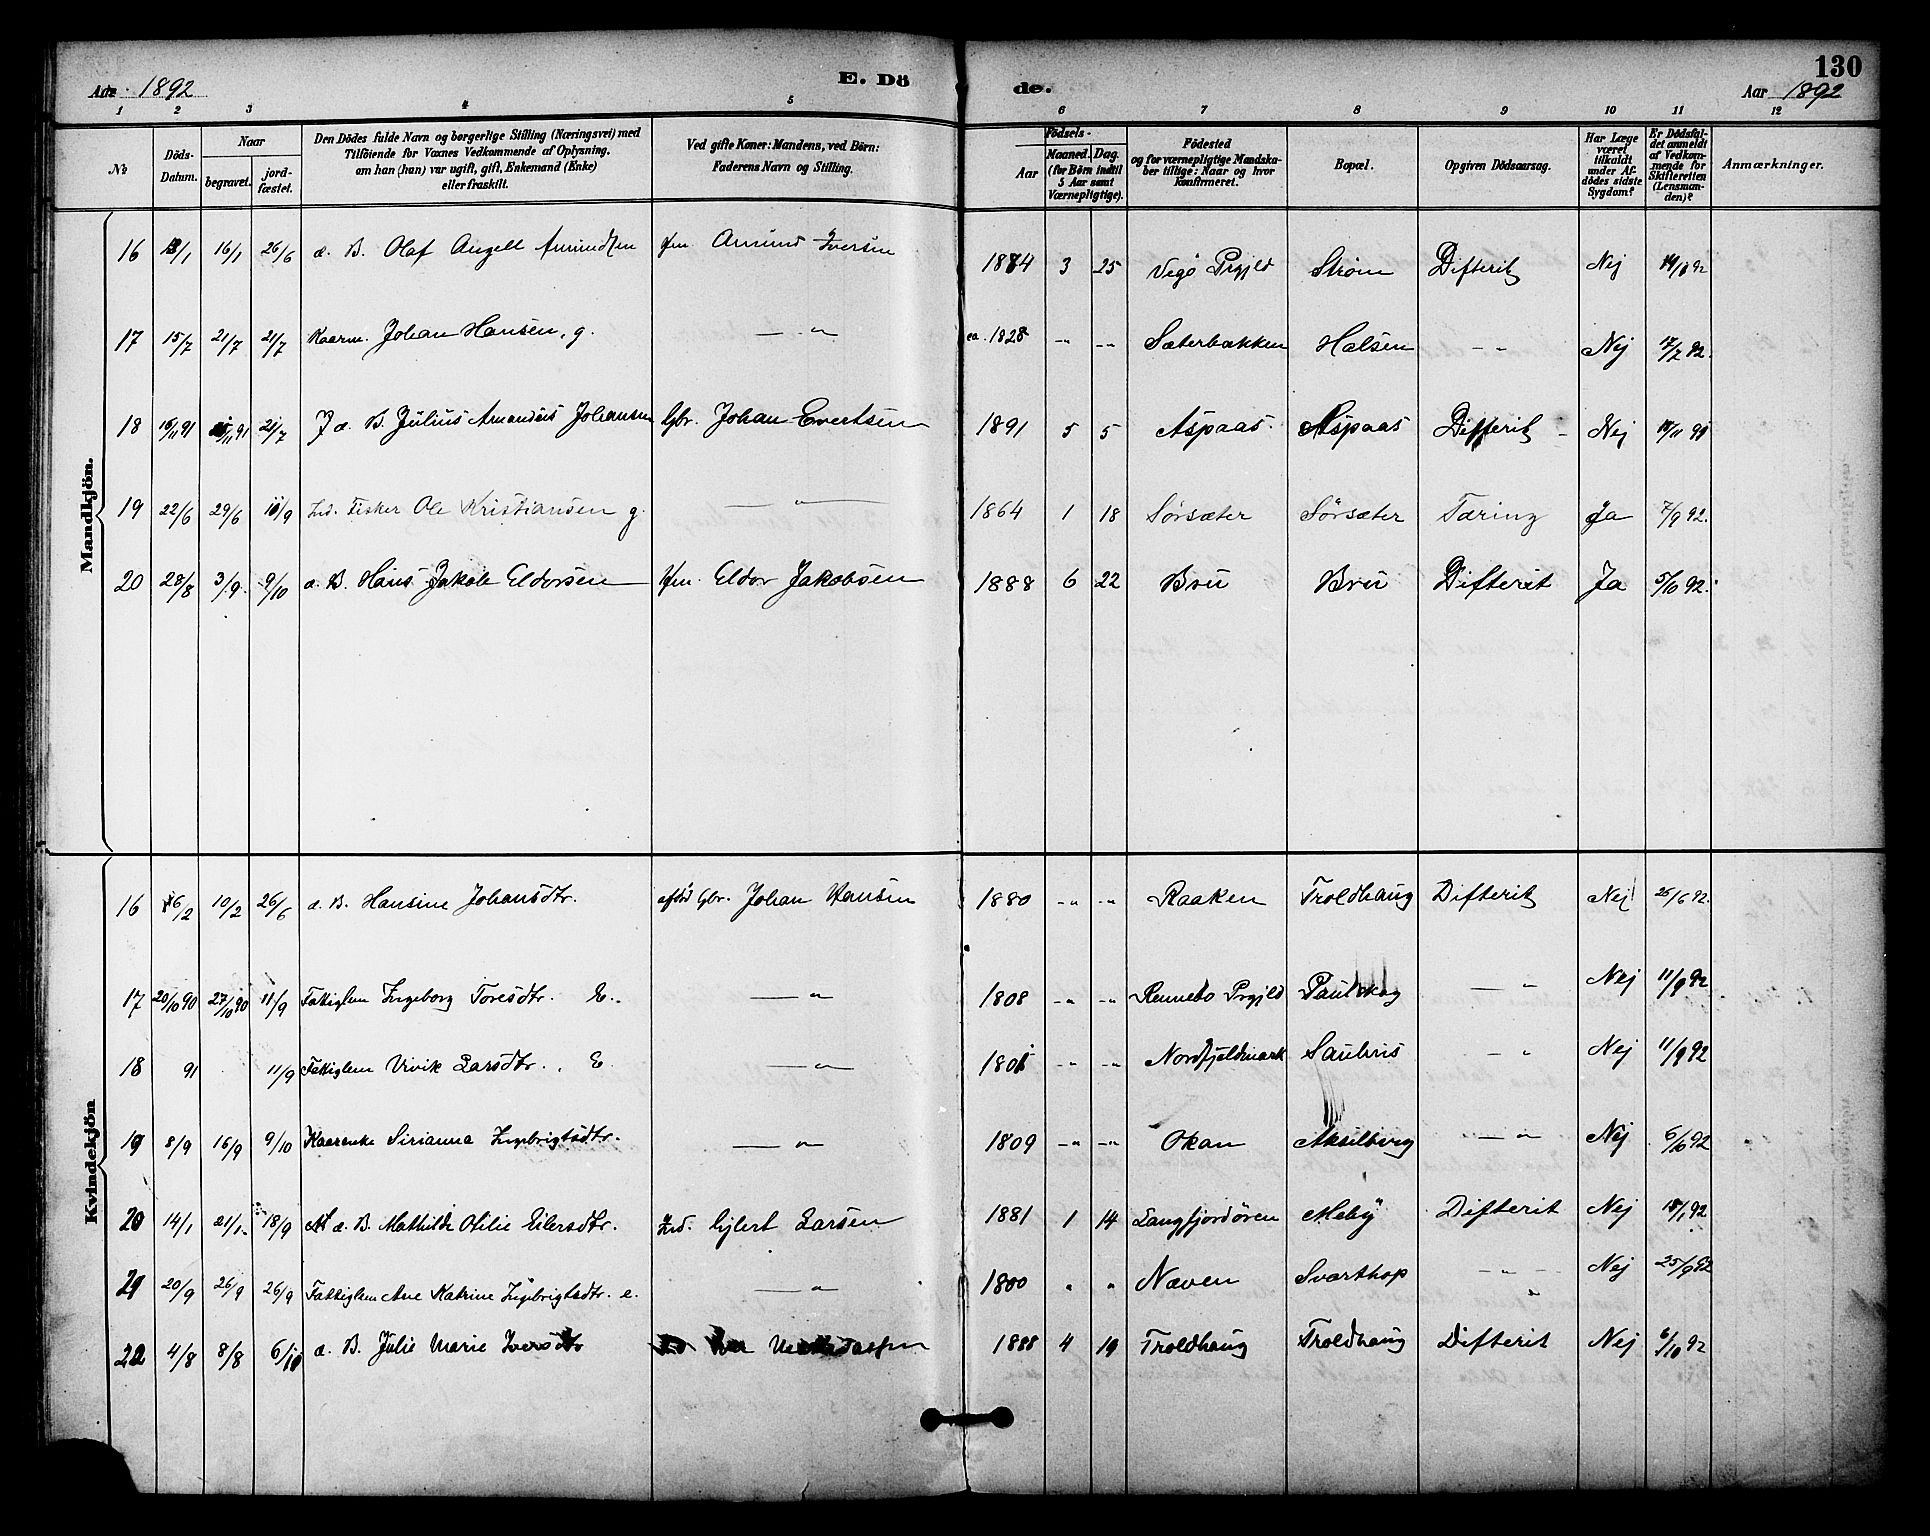 130
Aar 1892
E. Dö
de.
Aar 1892
1 2 3 4 5 6 7 8 9 10 11 12
№
Döds-Datum.
Naar
begravet.
jord-fæstet.
Den Dödes fulde Navn og borgerlige Stilling (Næringsvei) med
Tilföiende for Voxnes Vedkommende af Oplysning,
om han (hun) var ugift, gift, Enkemand (Enke)
eller fraskilt.
Ved gifte Koner: Mandens, ved Börn:
Faderens Navn og Stilling.
Födsels-
Aar
Maaned. Dag.
(for Börn indtil
5 Aar samt
Værnepligtige).
Födested
og for værnepligtige Mandska-
ber tillige: Naar og hvor
Konfirmeret.
Bopæl.
Opgiven Dödsaarsag.
Har Læge
været
tilkaldt
under Af-
dödes sidste
Sygdom?
Er Dödsfal-
det anmeldt
af Vedkom-
mende for
Skifteretten
(Lensman-
den)?
Anmærkninger.
Mandkjön.
16 13/1 16/1 26/6 æ. B. Olaf Angell Amundsen Hm Amund Iversen 1884 3 25 Vegö Prgjld Strøm Difterit Nej 92
17 15/7 21/7 21/7 Kaarm. Johan Hansen, g. — " ca. 1828 -"- -"- Sæterbækken Halsen -"- Nej 17/7 92.
18 16/11 91 /11 91 21/7 J æ. B. Julius Amandus Johansen Gbr. Johan Evertsen 1891 5 5 Aspaas. Aspaas Difterit Nej /11 91
19 22/6 29/6 11/9 Ind. Fisker Ole Kristiansen g. — " 1864 1 18 Sörsæter Sörsæter Tæring Ja 7/9 92.
20 28/8 3/9. 9/10 æ. B. Hans Jakob Eldorsen Hm. Eldor Jakobsen 1888 6 22 Bru Bru Difterit Ja 5/10 92.
Kvindekjön
16 6/2 10/2 26/6 æ. B. Hansine Johansdtr. afdöd Gbr. Johan Hansen 1880 -"- -"- Raaken Troldhaug Difterit Nej 26/6 92.
17 20/10 90 27/10 90 11/9 Fattiglem Ingeborg Toresdtr. E. — " 1808 -"- -"- Rennebo Prgjld Paulskag — " Nej 11/9 92
18 91 11/9 Fattiglem Larsdtr. E. — " 1801 -"- -"- Nordfjeldmark -"- Nej 11/9 92
19 8/9 16/9 9/10 Kaarenke Sirianna Ingebrigtsdtr. — " 1809 -"- -"- Okan Akselberg — " Nej 6/10 92
20 14/1 21/1. 18/9 æ. B. Mathilde Otilie Eilersdtr. Ind. Ejlert Larsen 1881 1 14 Langfjordören Meby Difterit Nej 18/1 92
21 20/9 26/9 26/9 Fattiglem Ane Katrine Ingebrigtsdtr. e. — " 1800 " " Næven Svarthop -"- Nej 25/9 92
22 4/8 8/8 6/10 æ. B. Julie Marie Iversdtr 1888 4 19 Troldhaug Troldhaug Difterit Nej 6/10 92